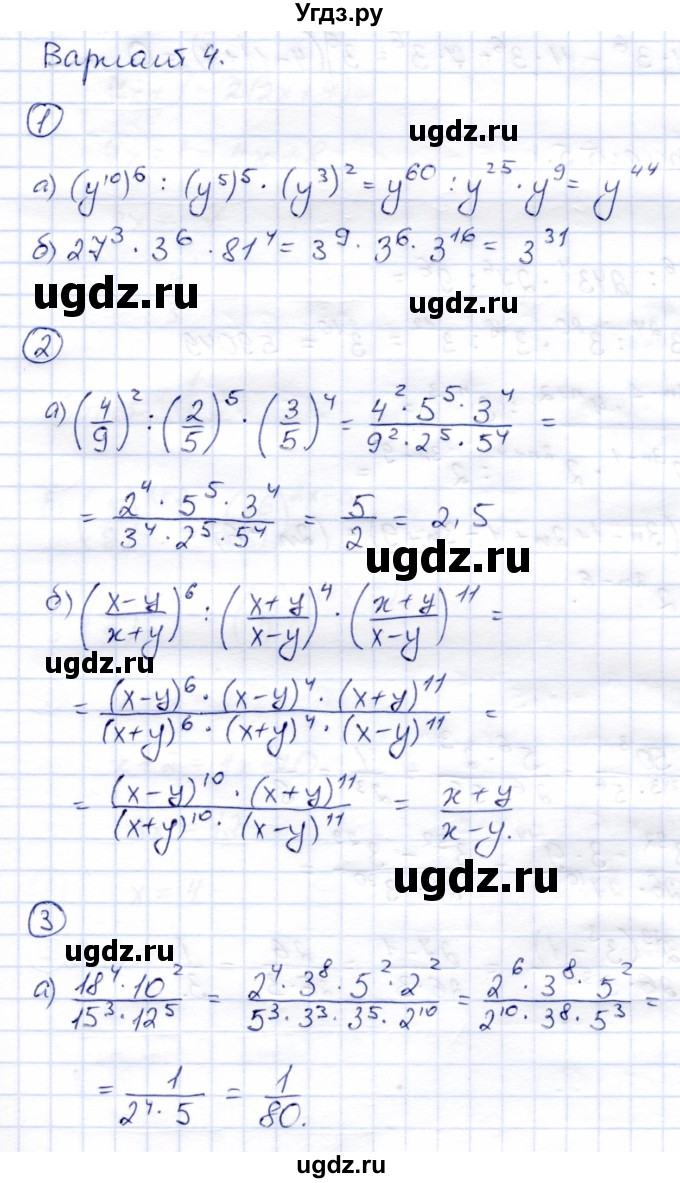 Угдз.ру
Вариант 4.
1
ugdz.ru
а) (y¹⁰)⁶ : (y⁵)⁵ · (y³)² = y⁶⁰ : y²⁵ · y⁹ = y⁴⁴
б) 27³ · 3⁶ · 81⁴ = 3⁹ · 3⁶ · 3¹⁶ = 3³¹
ugdz.ru
ugdz.ru
2
а) (4/9)² : (2/5)⁵ · (3/5)⁴ = (4² · 5⁵ · 3⁴)/(9² · 2⁵ · 5⁴) =
= (2⁴ · 5⁵ · 3⁴)/(3⁴ · 2⁵ · 5⁴) = 5/2 = 2,5
ugdz.ru
б) ((x-y)/(x+y))⁶ : ((x+y)/(x-y))⁴ · ((x+y)/(x-y))¹¹ =
ugdz.ru
= ((x-y)⁶ · (x-y)⁴ · (x+y)¹¹)/((x+y)⁶ · (x+y)⁴ · (x-y)¹¹) =
= ((x-y)¹⁰ · (x+y)¹¹)/((x+y)¹⁰ · (x-y)¹¹) = (x+y)/(x-y).
ugdz.ru
3
ugdz.ru
а) (18⁴ · 10²)/(15³ · 12⁵) = (2⁴ · 3⁸ · 5² · 2²)/(5³ · 3³ · 3⁵ · 2¹⁰) = (2⁶ · 3⁸ · 5²)/(2¹⁰ · 3⁸ · 5³) =
= 1/(2⁴ · 5) = 1/80.
ugdz.ru